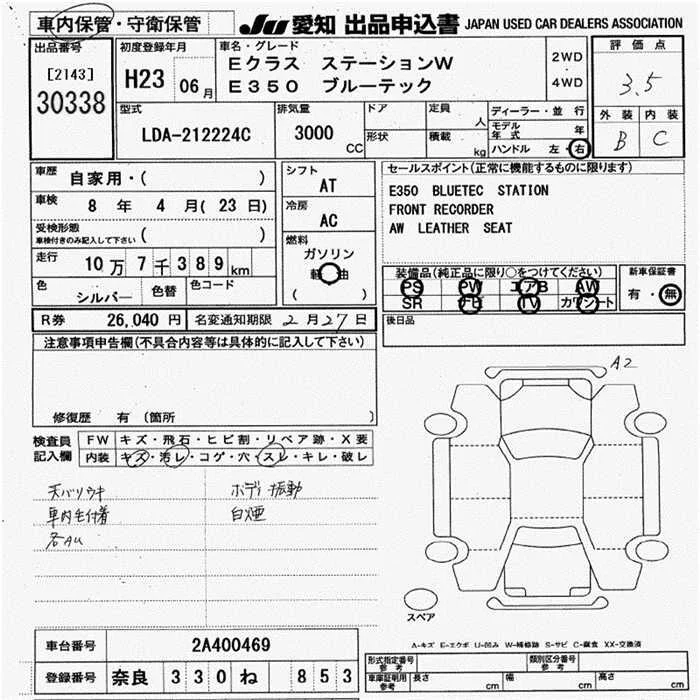 車内保管・守衛保管
JU 愛知 出品申込書 JAPAN USED CAR DEALERS ASSOCIATION
出品番号
[2143]
30338
初度登録年月
H23 06月
車名・グレード
Eクラス ステーションW
E350 ブルーテック
2WD
・
4WD
評価点
3.5
外装 内装
B C
型式
LDA-212224C
排気量
3000 CC
ドア
形状
定員 人
積載 kg
ディーラー・並行
モデル年式 年
ハンドル 左・右
車歴 自家用・( )
車検 8年 4月(23日)
受検形態
車検付きのみ記入して下さい ( )
走行 10万7千389km
色 シルバー 色替 色コード
シフト
AT
冷房
AC
燃料
ガソリン
軽油
( )
セールスポイント(正常に機能するものに限ります)
E350 BLUETEC STATION
FRONT RECORDER
AW LEATHER SEAT
装備品(純正品に限り○をつけてください)
PS PW エアB AW
SR ナビ TV カワシート
新車保証書
有・無
後日品
R券 26,040円 名変通知期限 2月27日
注意事項申告欄(不具合内容等は具体的に記入して下さい)
修復歴 有 (箇所 )
検査員記入欄
FW キズ・飛石・ヒビ割・リペア跡・X要
内装 キズ・汚レ・コゲ・穴・スレ・キレ・破レ
天バリウキ
車内毛付着
各AU
ボディ振動
白煙
A2
スペア
A-キズ E-エクボ U-凹み W-補修跡 S-サビ C-腐食 XX-交換済
車台番号 2A400469
登録番号 奈良 330 ね 853
形式指定番号 参考
類別区分番号 参考
車庫証明用 参考 長さ cm 幅 cm 高さ cm